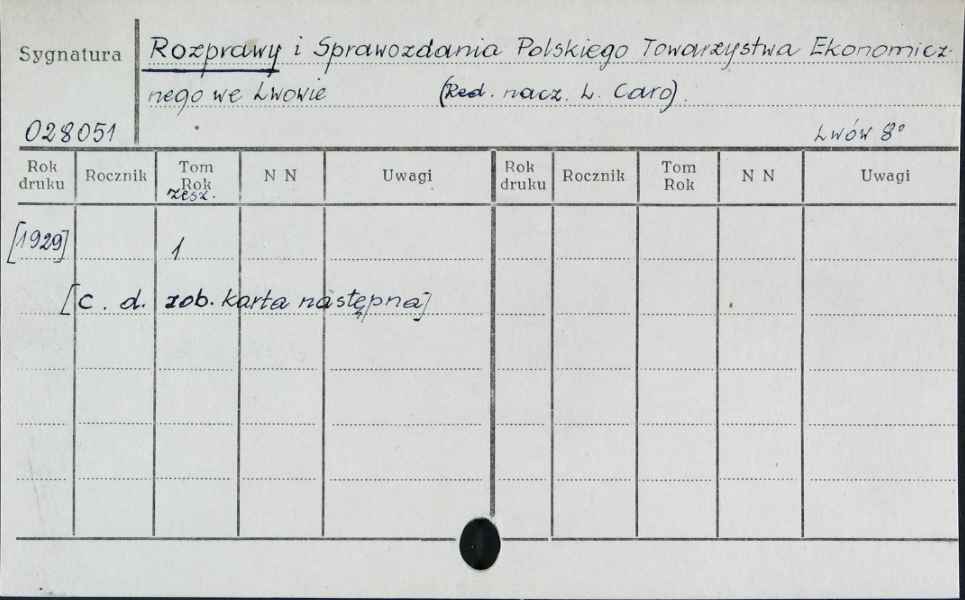 Sygnatura
Rozprawy i Sprawozdania Polskiego Towarzystwa Ekonomicz-
nego we Lwowie (Red. nacz. L. Caro).
028051
Lwów 8°
Rok druku Rocznik Tom Rok zesz. N N Uwagi Rok druku Rocznik Tom Rok N N Uwagi
[1929] 1
[c. d. zob. karta następna]